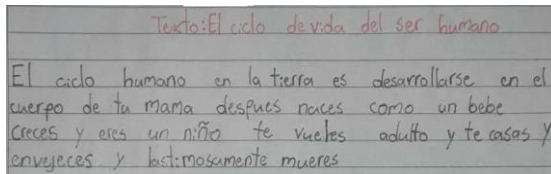 Texto: El ciclo de vida del ser humano
El ciclo humano en la tierra es desarrollarse en el
cuerpo de tu mama despues naces como un bebe
creces y eres un niño te vueles adulto y te casas y
envejeces y lastimosamente mueres